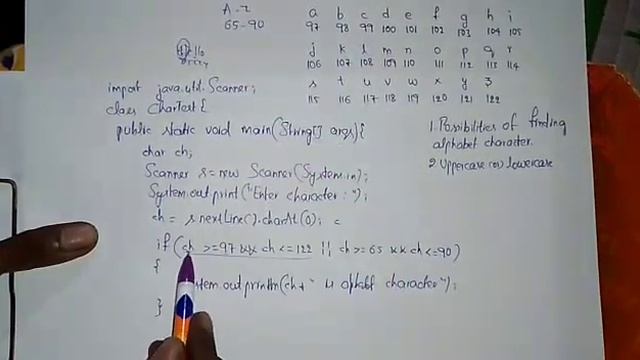 A-Z
65-90
a b c d e f g h i
97 98 99 100 101 102 103 104 105
j k l m n o p q r
106 107 108 109 110 111 112 113 114
s t u v w x y z
115 116 117 118 119 120 121 122
import java.util.Scanner;
class CharTest {
public static void main(String[] args){
char ch;
Scanner s=new Scanner(System.in);
System.out.print("Enter character :");
ch = s.nextLine().charAt(0); c
if(ch >=97 && ch <=122 || ch >=65 && ch <=90)
{
stem.out.println(ch+" is alphabet character");
}
1. Possibilities of finding
alphabet character.
2 Uppercase (or) lowercase